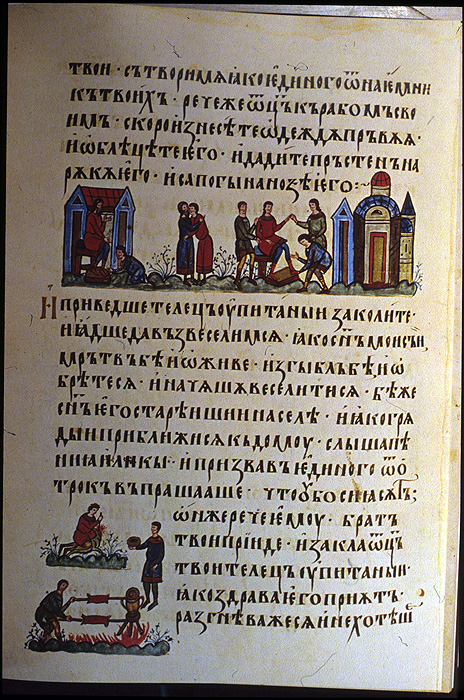 твои · сътвори мѧ ꙗко ѥдиного ѿ наѥмни
къ твоихъ · рече же ѿц҃ъ къ рабомъ сво
имъ · скоро изнесѣте ѡдеждѫ прьвѫѧ ·
и ѡблѣцѣте ѥго · и дадите прьстенъ на
рѫкѫ ѥго · и сапогы на нозѣ ѥго ·
И приведше телець ѹпитаныи заколите ·
и ꙗдше да възвеселимсѧ · ꙗко сн҃ъ мои сьи
мрьтвъ бѣ и ѡживе · изгыблъ бѣ и ѡ
брѣтесѧ · и начѧшѧ веселитисѧ · бѣ же
сн҃ъ ѥго старѣишии на селѣ · и ꙗко грѧ
ды и приближисѧ къ домоу · слыша пѣ
ниꙗ и ликы · и призвавъ ѥдиного ѿ ѡ
трокъ въпрашааше · что ѹбо си сѫть;
ѡн же рече ѥмоу · братъ
твои прииде · и закла ѿц҃ъ
твои телець ѹпитаныи ·
ꙗко здрава ѥго приѧтъ ·
разгнѣва же сѧ и не хотѣш